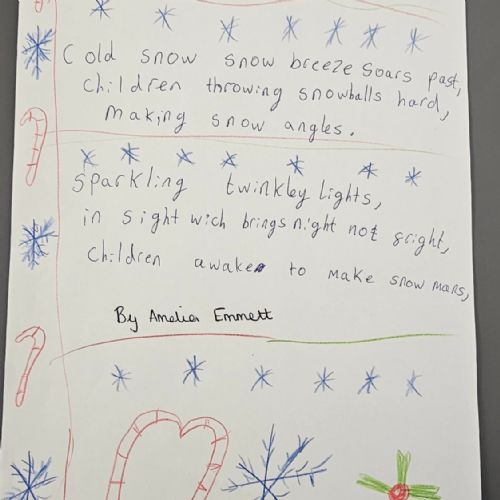 Cold snow snow breeze soars past,
children throwing snowballs hard,
making snow angles.
Sparkling twinkley lights,
in sight wich brings night not gright,
children awake to make snow mans,
By Amelia Emmett